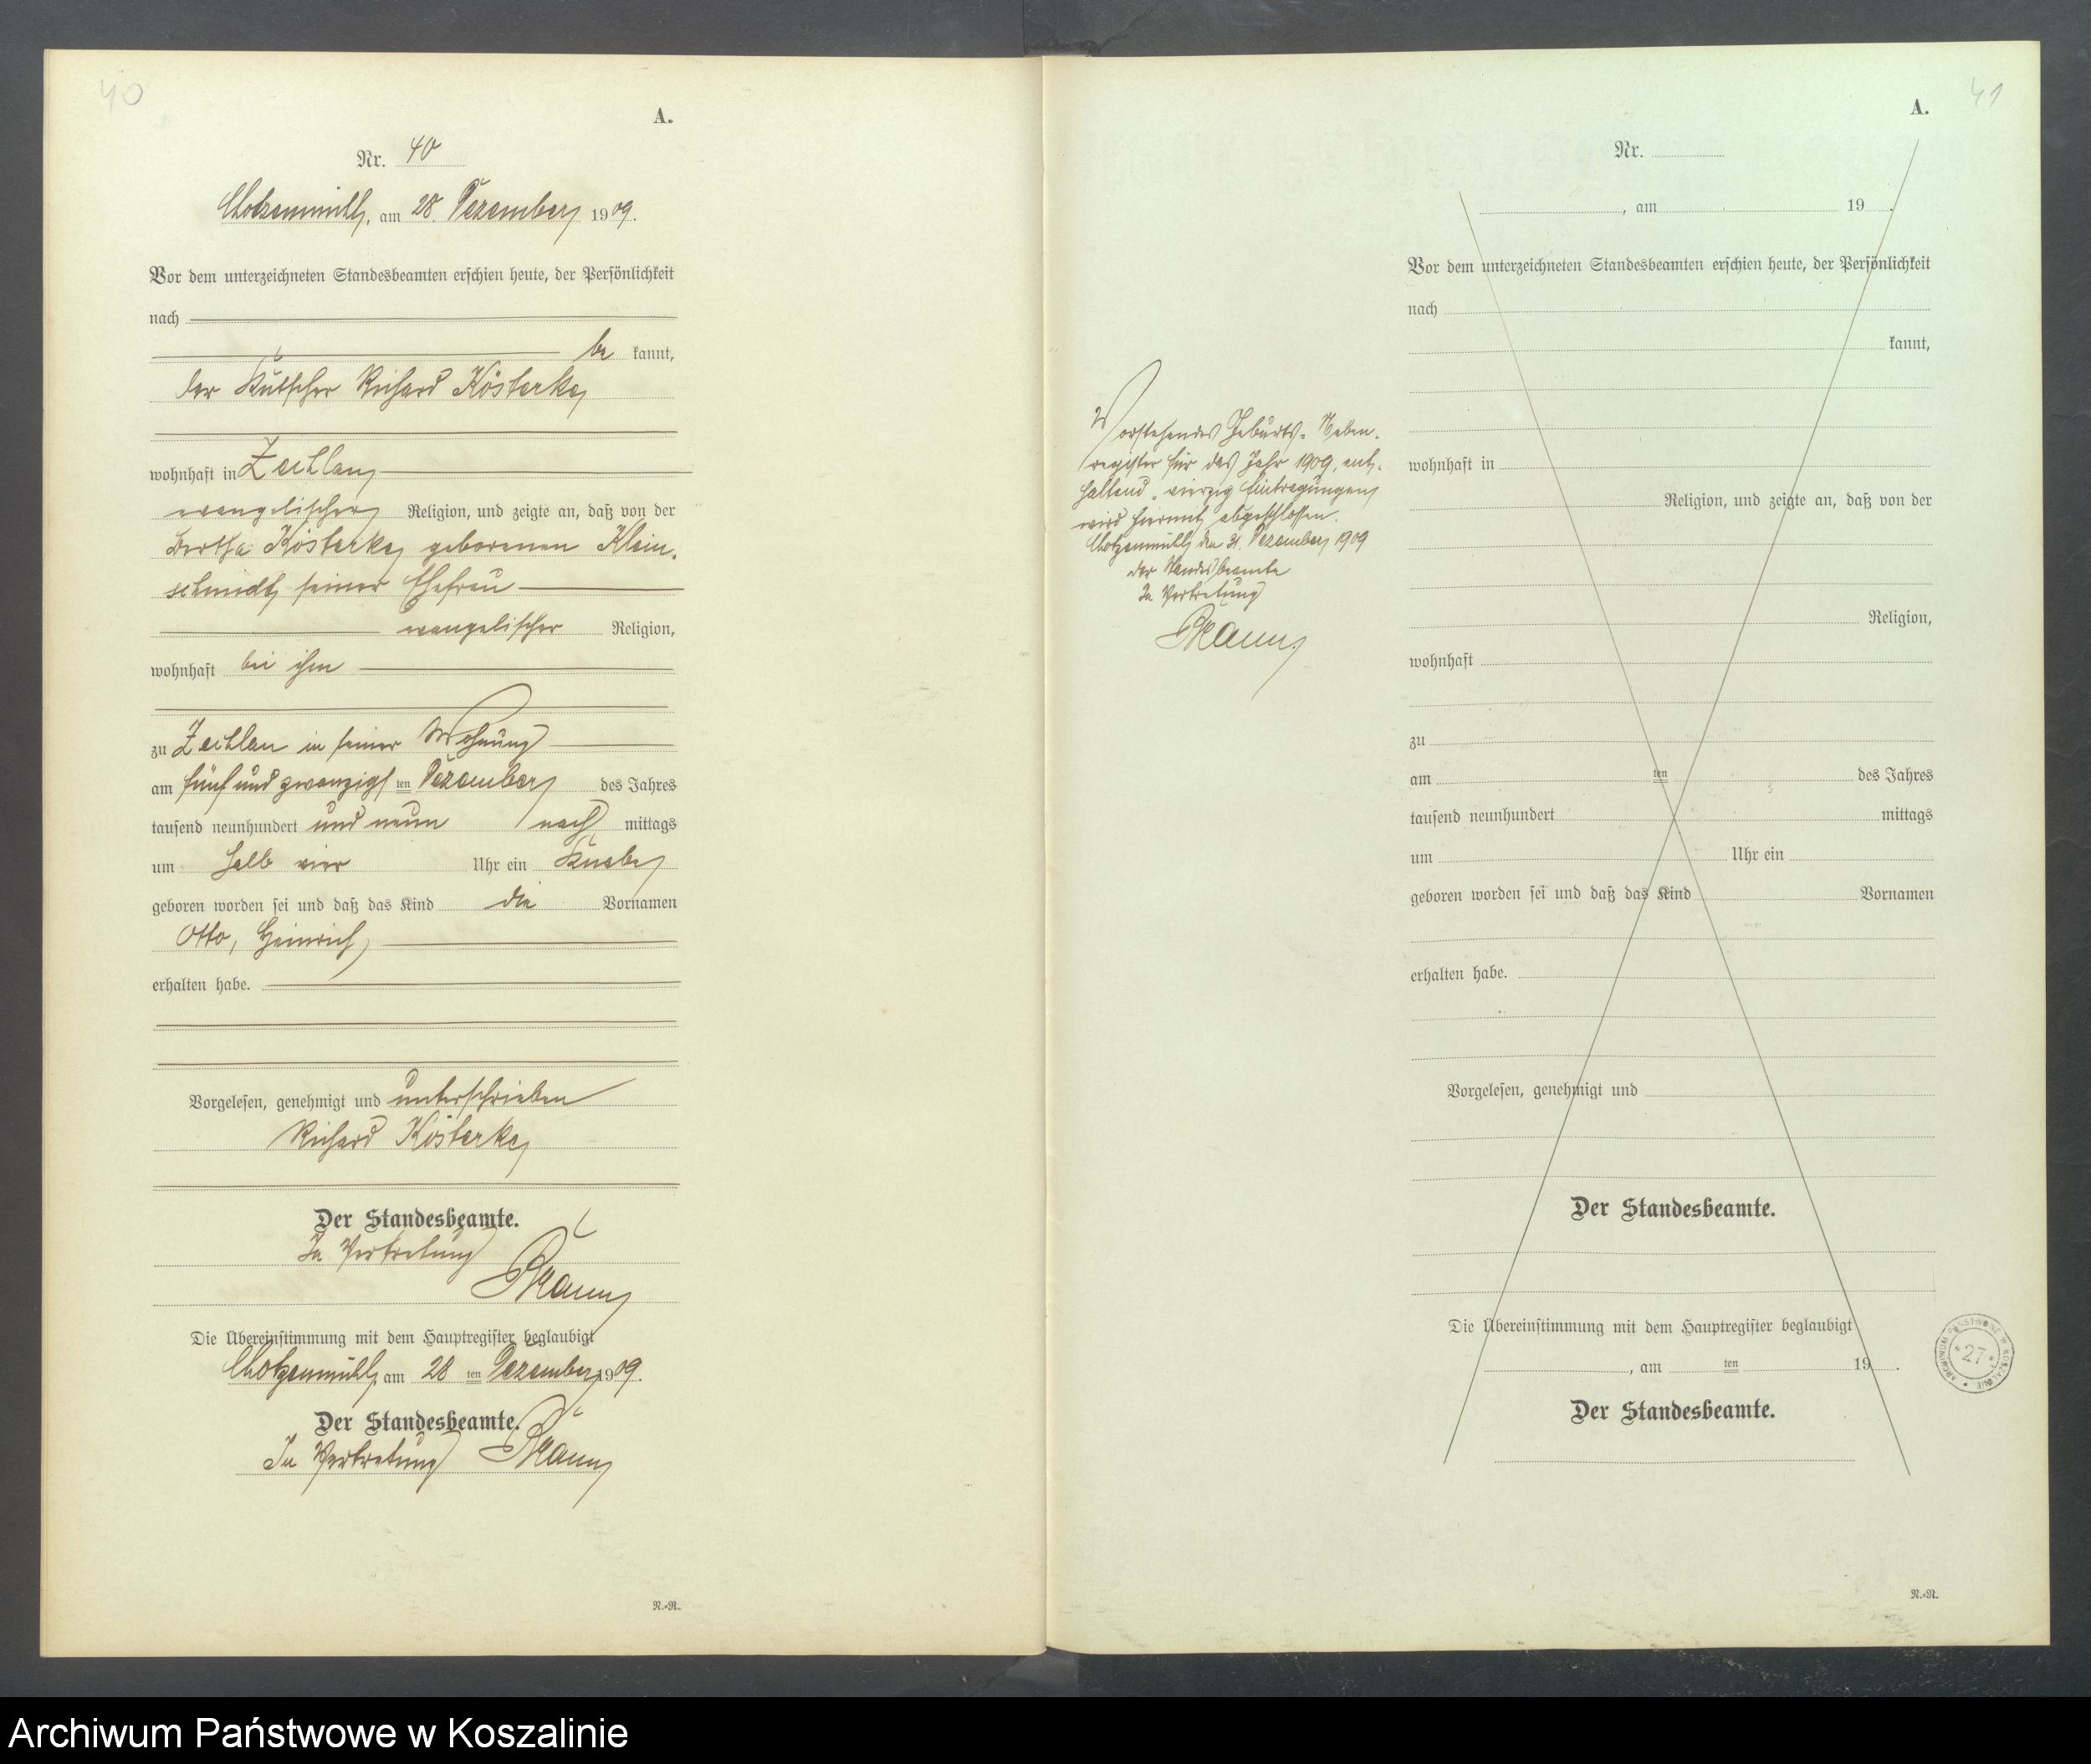 40
A.
Nr. 40
Chotzenmühl, am 28. Dezember 1909.
Vor dem unterzeichneten Standesbeamten erschien heute, der Persönlichkeit
nach
be kannt,
der Kutscher Richard Kösterke,
wohnhaft in Zechlau,
evangelischer Religion, und zeigte an, daß von der
Bertha Kösterke, geborenen Klein-
schmidt, seiner Ehefrau
evangelischer Religion,
wohnhaft bei ihm
zu Zechlau in seiner Wohnung
am fünf und zwanzigs ten Dezember des Jahres
tausend neunhundert und neun nach mittags
um halb vier Uhr ein Knabe
geboren worden sei und daß das Kind die Vornamen
Otto, Heinrich,
erhalten habe.
Vorgelesen, genehmigt und unterschrieben
Richard Kösterke,
Der Standesbeamte.
In Vertretung
Die Übereinstimmung mit dem Hauptregister beglaubigt
Chotzenmühl, am 28 ten Dezember 1909.
Der Standesbeamte.
In Vertretung
N.-R.
41
A.
Vorstehendes Geburts-Neben-
register für das Jahr 1909, ent-
haltend vierzig Eintragungen,
wird hiermit abgeschlossen.
Chotzenmühl, den 31. Dezember 1909
Der Standesbeamte
In Vertretung
Nr.
, am 19 .
Vor dem unterzeichneten Standesbeamten erschien heute, der Persönlichkeit
nach
kannt,
wohnhaft in
Religion, und zeigte an, daß von der
Religion,
wohnhaft
zu
am ten des Jahres
tausend neunhundert mittags
um Uhr ein
geboren worden sei und daß das Kind Vornamen
erhalten habe.
Vorgelesen, genehmigt und
Der Standesbeamte.
Die Übereinstimmung mit dem Hauptregister beglaubigt
, am ten 19 .
Der Standesbeamte.
ARCHIWUM PAŃSTWOWE W KOSZALINIE
27
N.-R.
Archiwum Państwowe w Koszalinie